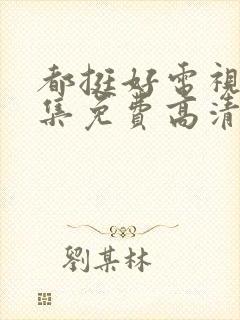 都挺好電視
集免費高清
劉某林